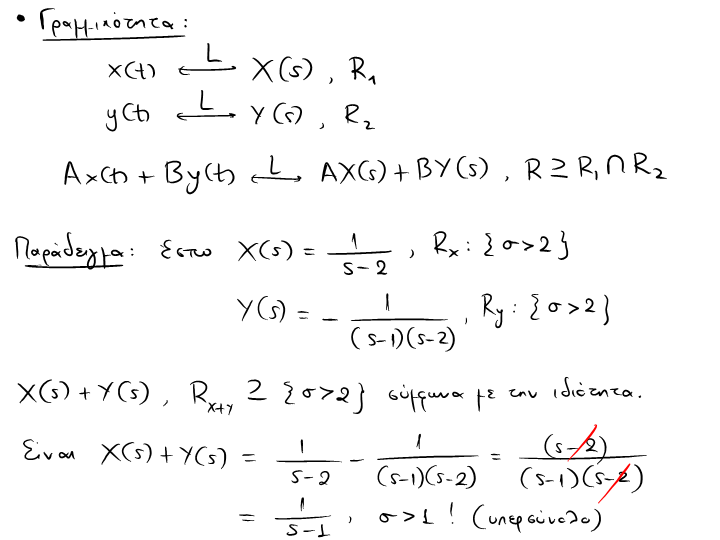 • Γραμμικότητα:
x(t) ⟷ᴸ X(s), R₁
y(t) ⟷ᴸ Y(s), R₂
Ax(t) + By(t) ⟷ᴸ AX(s) + BY(s), R ⊇ R₁ ∩ R₂
Παράδειγμα: έστω X(s) = 1/(s-2), Rₓ: {σ>2}
Y(s) = - 1/((s-1)(s-2)), R_y: {σ>2}
X(s) + Y(s), R_{x+y} ⊇ {σ>2} σύμφωνα με την ιδιότητα.
Είναι X(s) + Y(s) = 1/(s-2) - 1/((s-1)(s-2)) = (s-2)/((s-1)(s-2))
= 1/(s-1), σ>1! (υπερσύνολο)